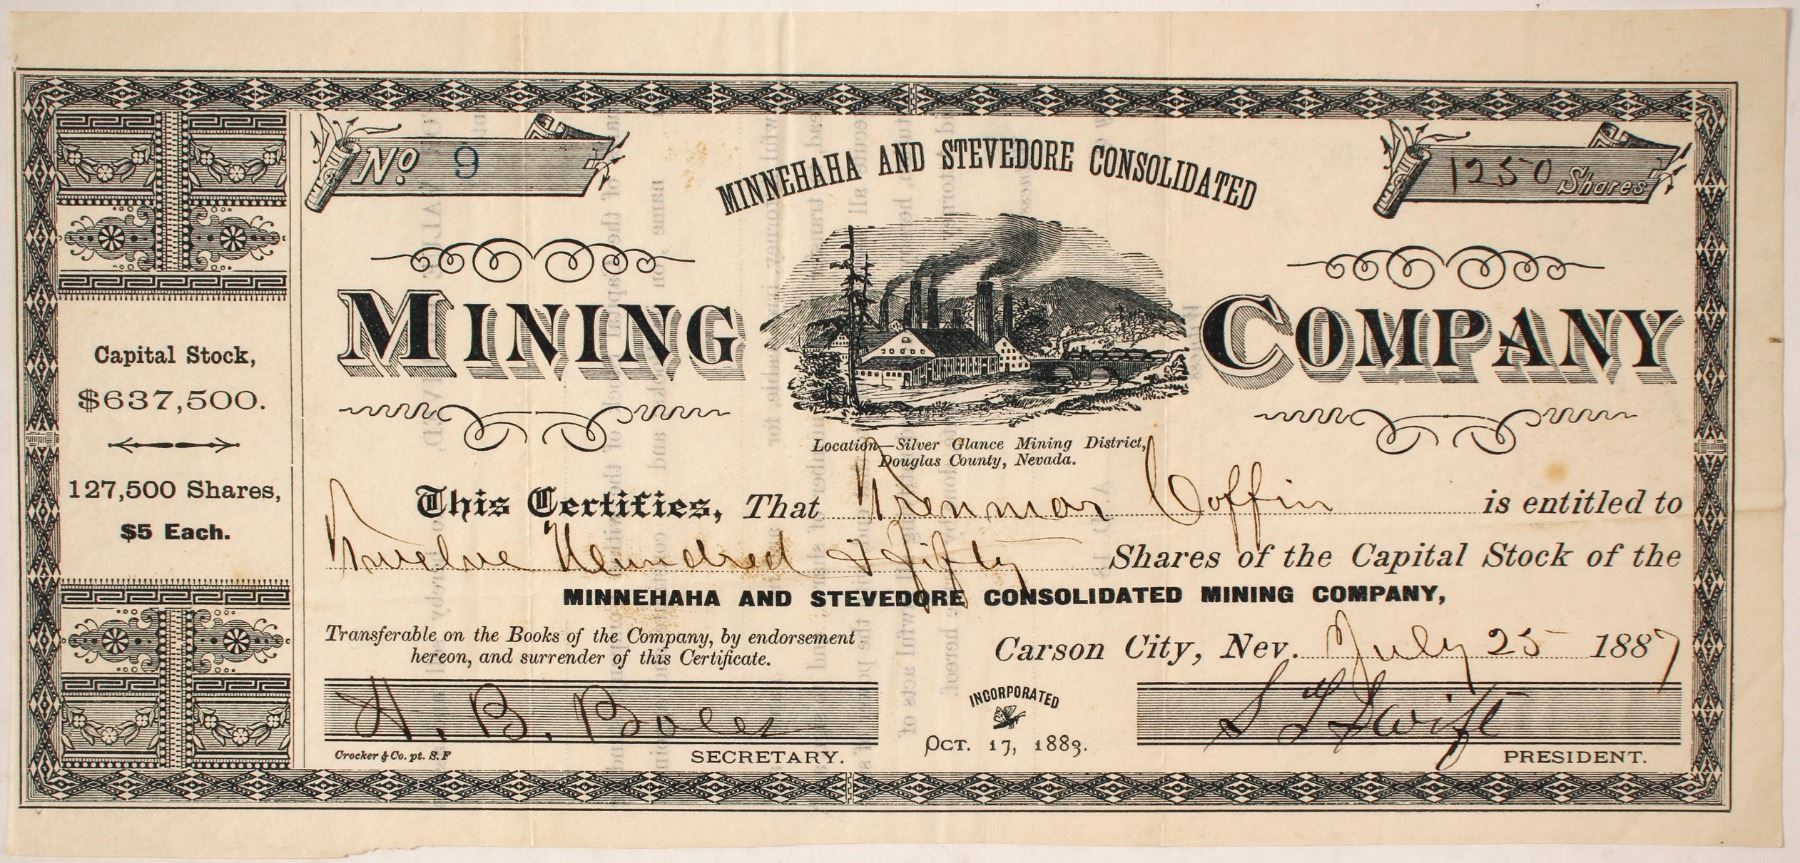 No 9
1250 Shares
MINNEHAHA AND STEVEDORE CONSOLIDATED
MINING COMPANY
Location—Silver Glance Mining District,
Douglas County, Nevada.
Capital Stock,
$637,500.
127,500 Shares,
$5 Each.
This Certifies, That Trenmor Coffin is entitled to
Twelve Hundred & fifty Shares of the Capital Stock of the
MINNEHAHA AND STEVEDORE CONSOLIDATED MINING COMPANY,
Transferable on the Books of the Company, by endorsement
hereon, and surrender of this Certificate.
Carson City, Nev. July 25 1887
H. B. Boles
SECRETARY.
Crocker & Co. pt. S. F
INCORPORATED
OCT. 17, 1883.
S T Swift
PRESIDENT.